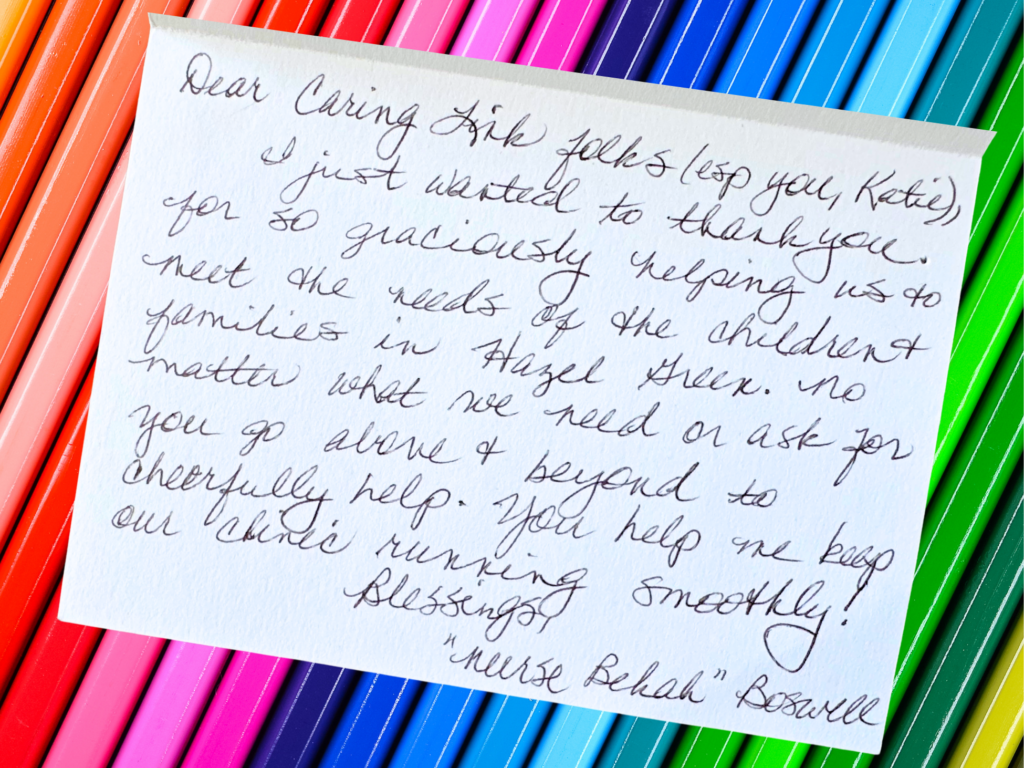 Dear Caring Link folks (esp you, Katie),
I just wanted to thank you.
for so graciously helping us to
meet the needs of the children &
families in Hazel Green. No
matter what we need or ask for
you go above & beyond to
cheerfully help. You help me keep
our clinic running smoothly!
Blessings,
"Nurse Bekah" Boswell